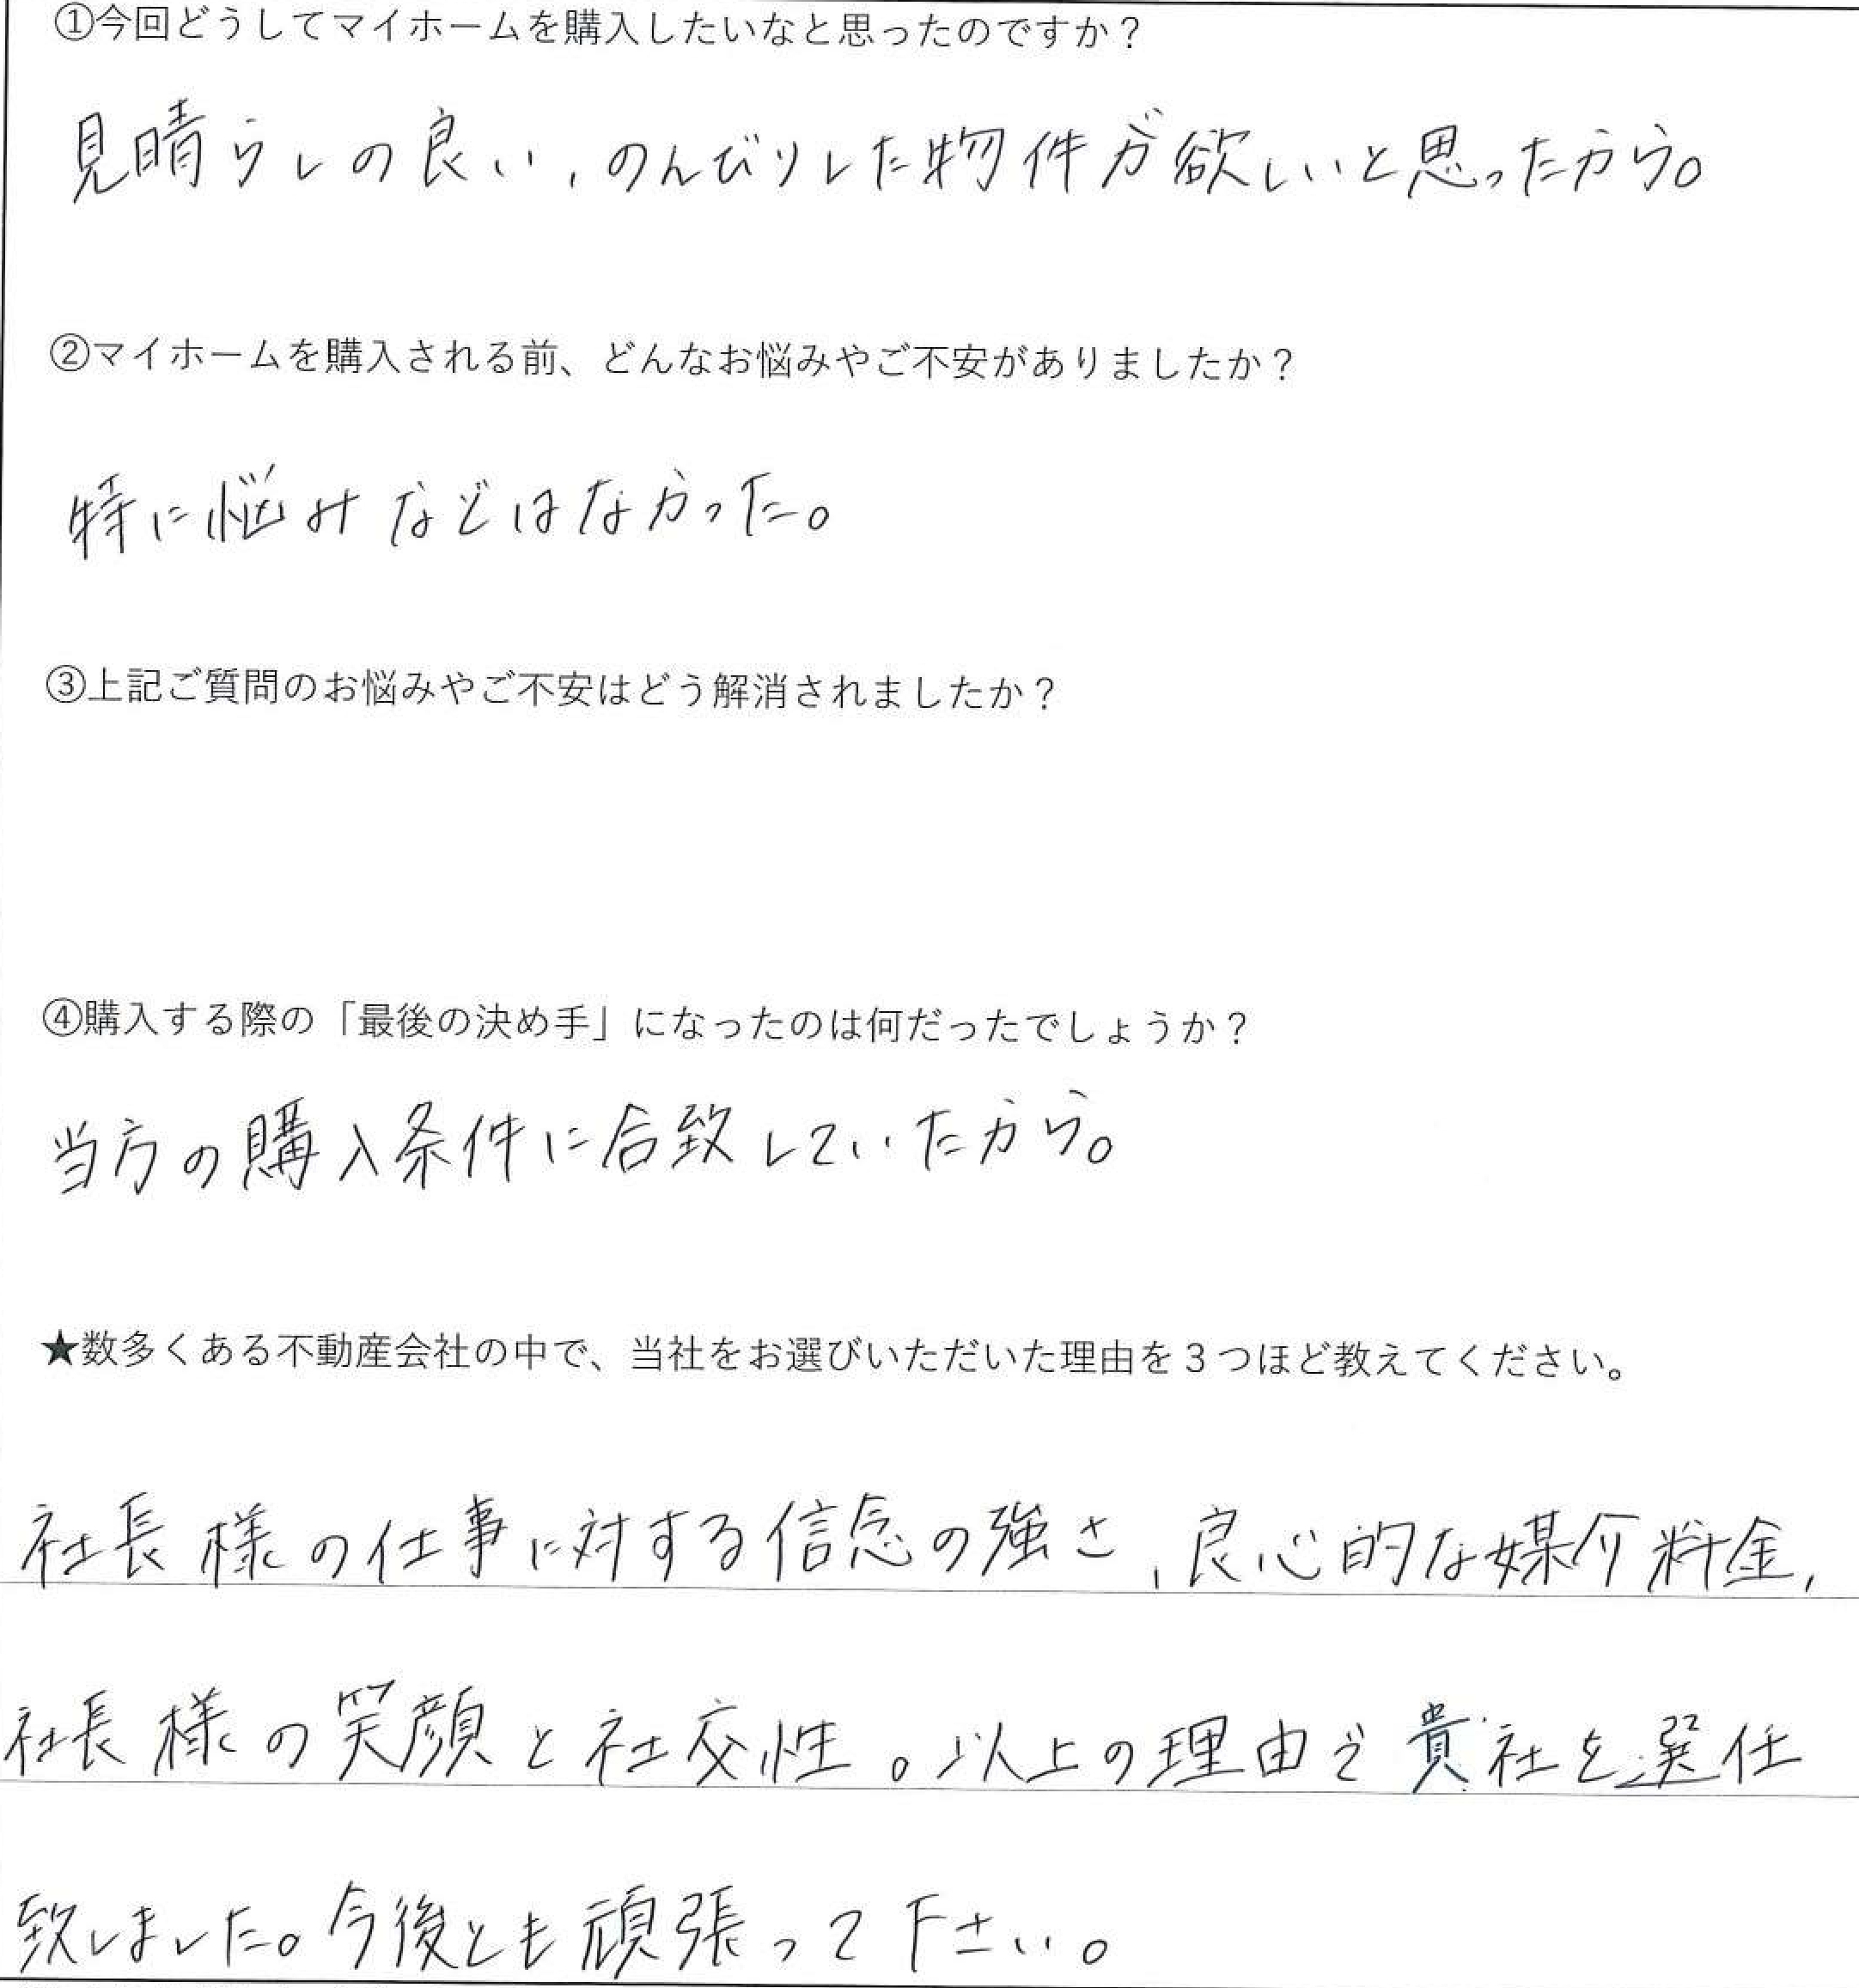 ①今回どうしてマイホームを購入したいなと思ったのですか？
見晴らしの良い，のんびりした物件が欲しいと思ったから。
②マイホームを購入される前、どんなお悩みやご不安がありましたか？
特に悩みなどはなかった。
③上記ご質問のお悩みやご不安はどう解消されましたか？
④購入する際の「最後の決め手」になったのは何だったでしょうか？
当方の購入条件に合致していたから。
★数多くある不動産会社の中で、当社をお選びいただいた理由を３つほど教えてください。
社長様の仕事に対する信念の強さ，良心的な媒介料金，
社長様の笑顔と社交性。以上の理由で貴社を選任
致しました。今後とも頑張って下さい。